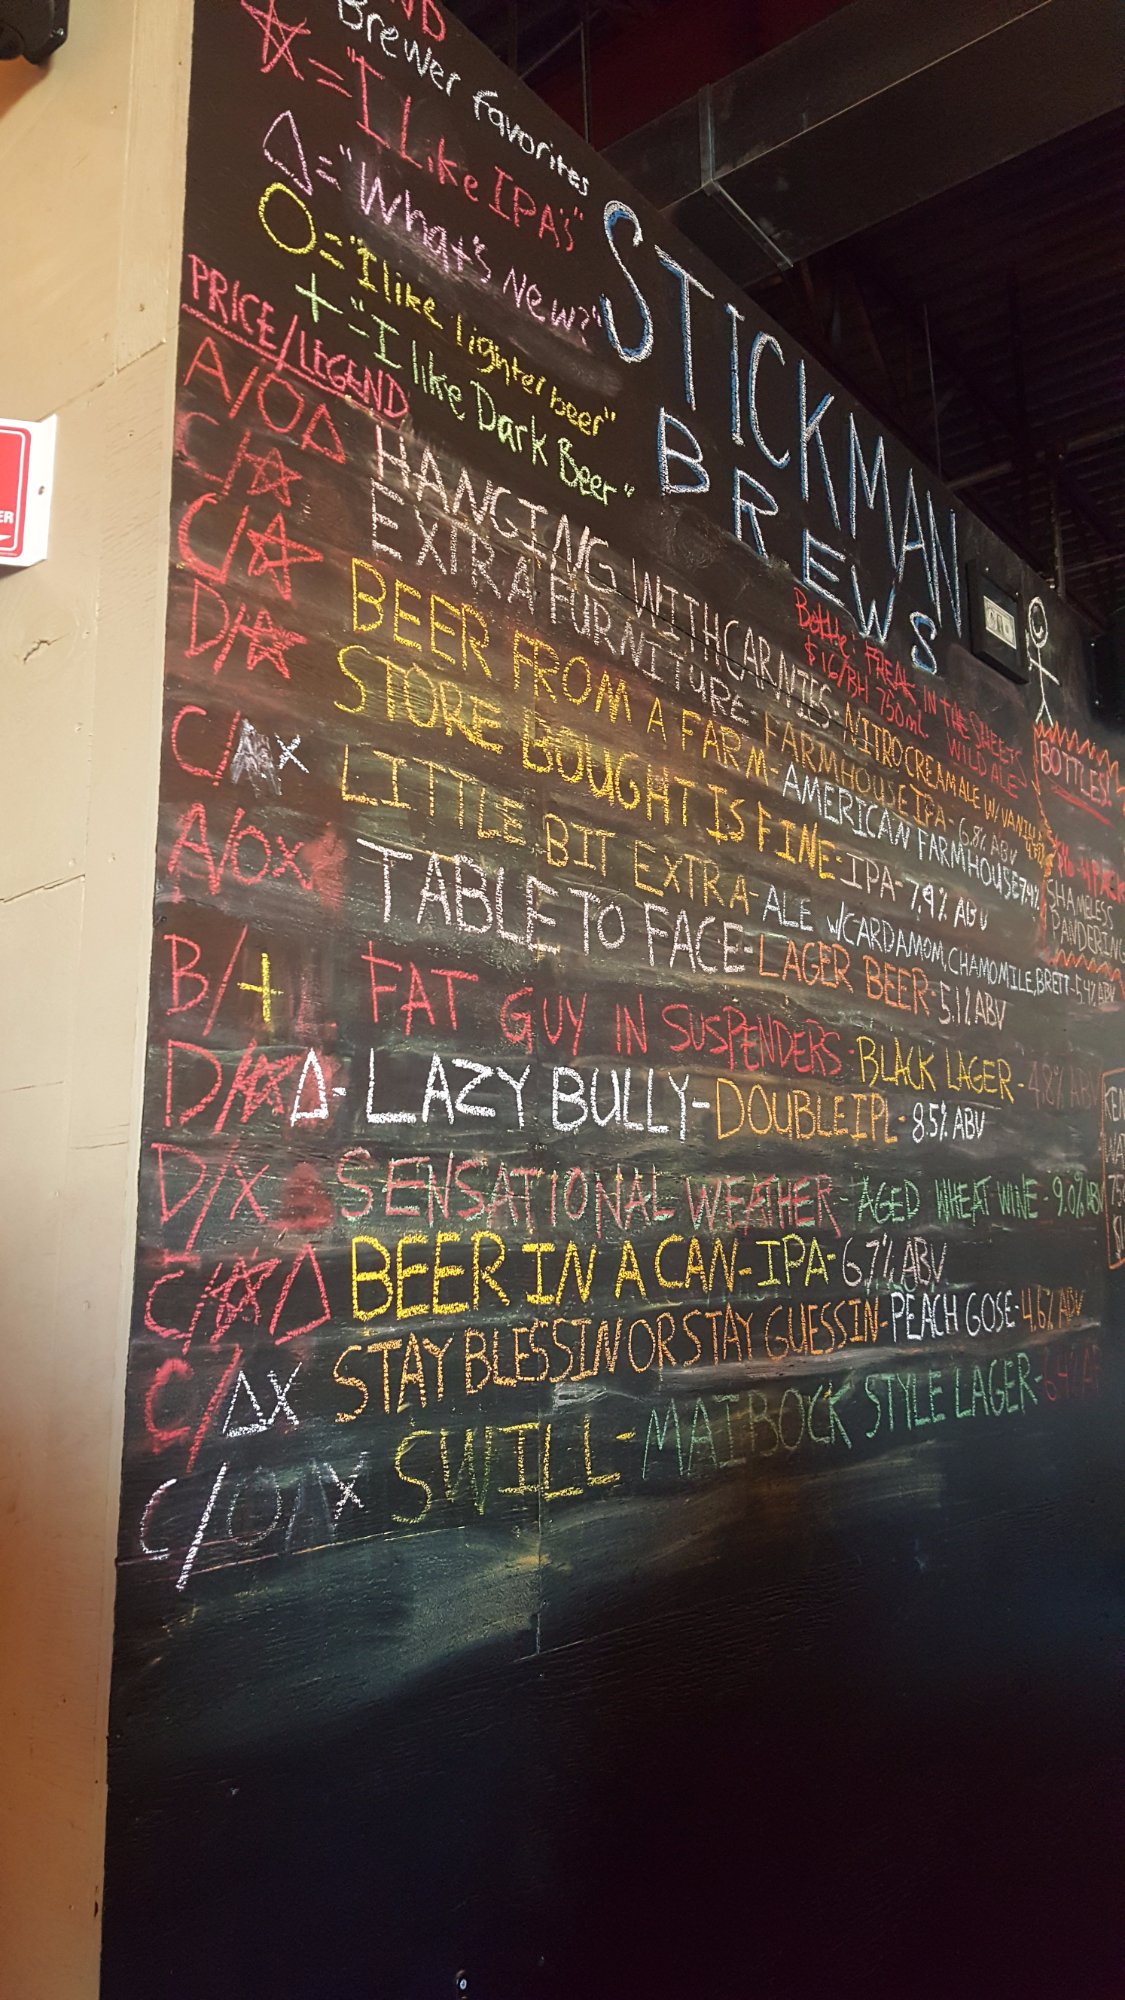 Brewer Favorites
☆ = "I Like IPA's"
△ = "What's New?"
O = "I like lighter beer"
+ = "I like Dark Beer"
STICKMAN
BREWS
Bottle: FREAK IN THE SHEETS
$16/BH 750mL WILD ALE
BOTTLES!
SHAMELESS
PANDERING
PRICE/LEGEND
A/O△ HANGING WITH CARNIES - NITRO CREAM ALE W/ VANILLA
C/☆ EXTRA FURNITURE - FARMHOUSE IPA - 6.8% ABV
C/☆ BEER FROM A FARM - AMERICAN FARMHOUSE 7.4%
D/☆ STORE BOUGHT IS FINE - IPA - 7.9% ABV
C/△X LITTLE BIT EXTRA - ALE W/CARDAMOM, CHAMOMILE, BRETT - 5.4% ABV
A/OX TABLE TO FACE - LAGER BEER - 5.1% ABV
B/+ FAT GUY IN SUSPENDERS - BLACK LAGER - 4.8% ABV
D/☆△ - LAZY BULLY - DOUBLE IPL - 8.5% ABV
D/X SENSATIONAL WEATHER - AGED WHEAT WINE - 9.0% ABV
C/☆△ BEER IN A CAN - IPA - 6.7% ABV
C/△X STAY BLESSIN OR STAY GUESSIN - PEACH GOSE - 4.6% ABV
C/O X SWILL - MAIBOCK STYLE LAGER -